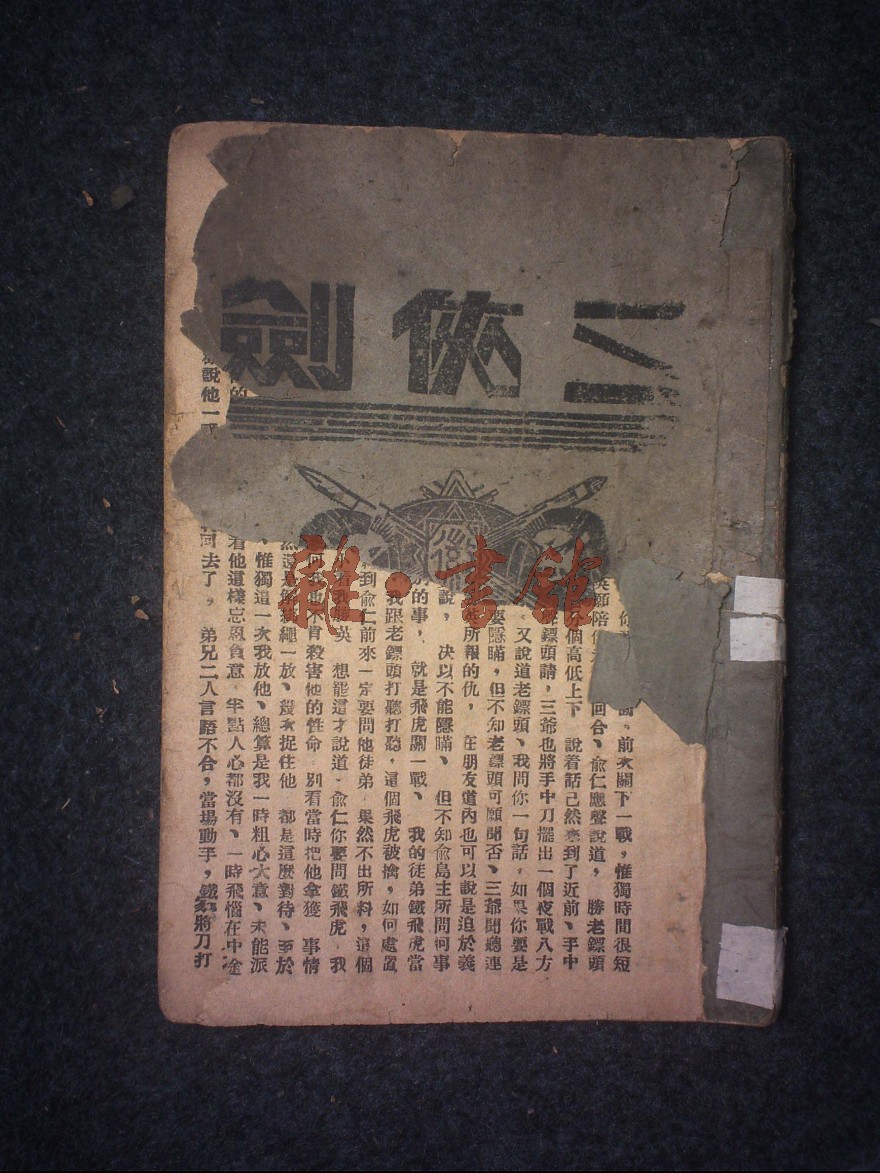 三俠劍
雜·書館
前次關下一戰，惟獨時間很短
回合、俞仁應聲說道，勝老鏢頭
分個高低上下 說着話已然來到了近前、手中
鏢頭請，三爺也將手中刀擺出一個夜戰八方
又說道老鏢頭、我問你一句話，如果你要是
要隱瞞，但不知老鏢頭可願聞否、三爺聞聽連
所報的仇， 在朋友道內也可以說是迫於義
說， 決以不能隱瞞、 但不知俞島主所問何事
的事， 就是飛虎關一戰、 我的徒弟鐵飛虎當
我跟老鏢頭打聽打聽，這個飛虎被擒，如何處置
到俞仁前來一定要問他徒弟 果然不出所料，這個
想罷這才說道．俞仁你要問鐵飛虎．我
也不肯殺害他的性命 別看當時把他拿獲 事情
解綁繩一放、幾次捉住他 都是這麼對待、至於
、惟獨這一次我放他、總算是我一時粗心大意、未能派
着他這樣忘恩負意．半點人心都沒有、一時飛惱在中途
的
說他一
回去了， 弟兄二人言語不合，當場動手，鐵 將刀打